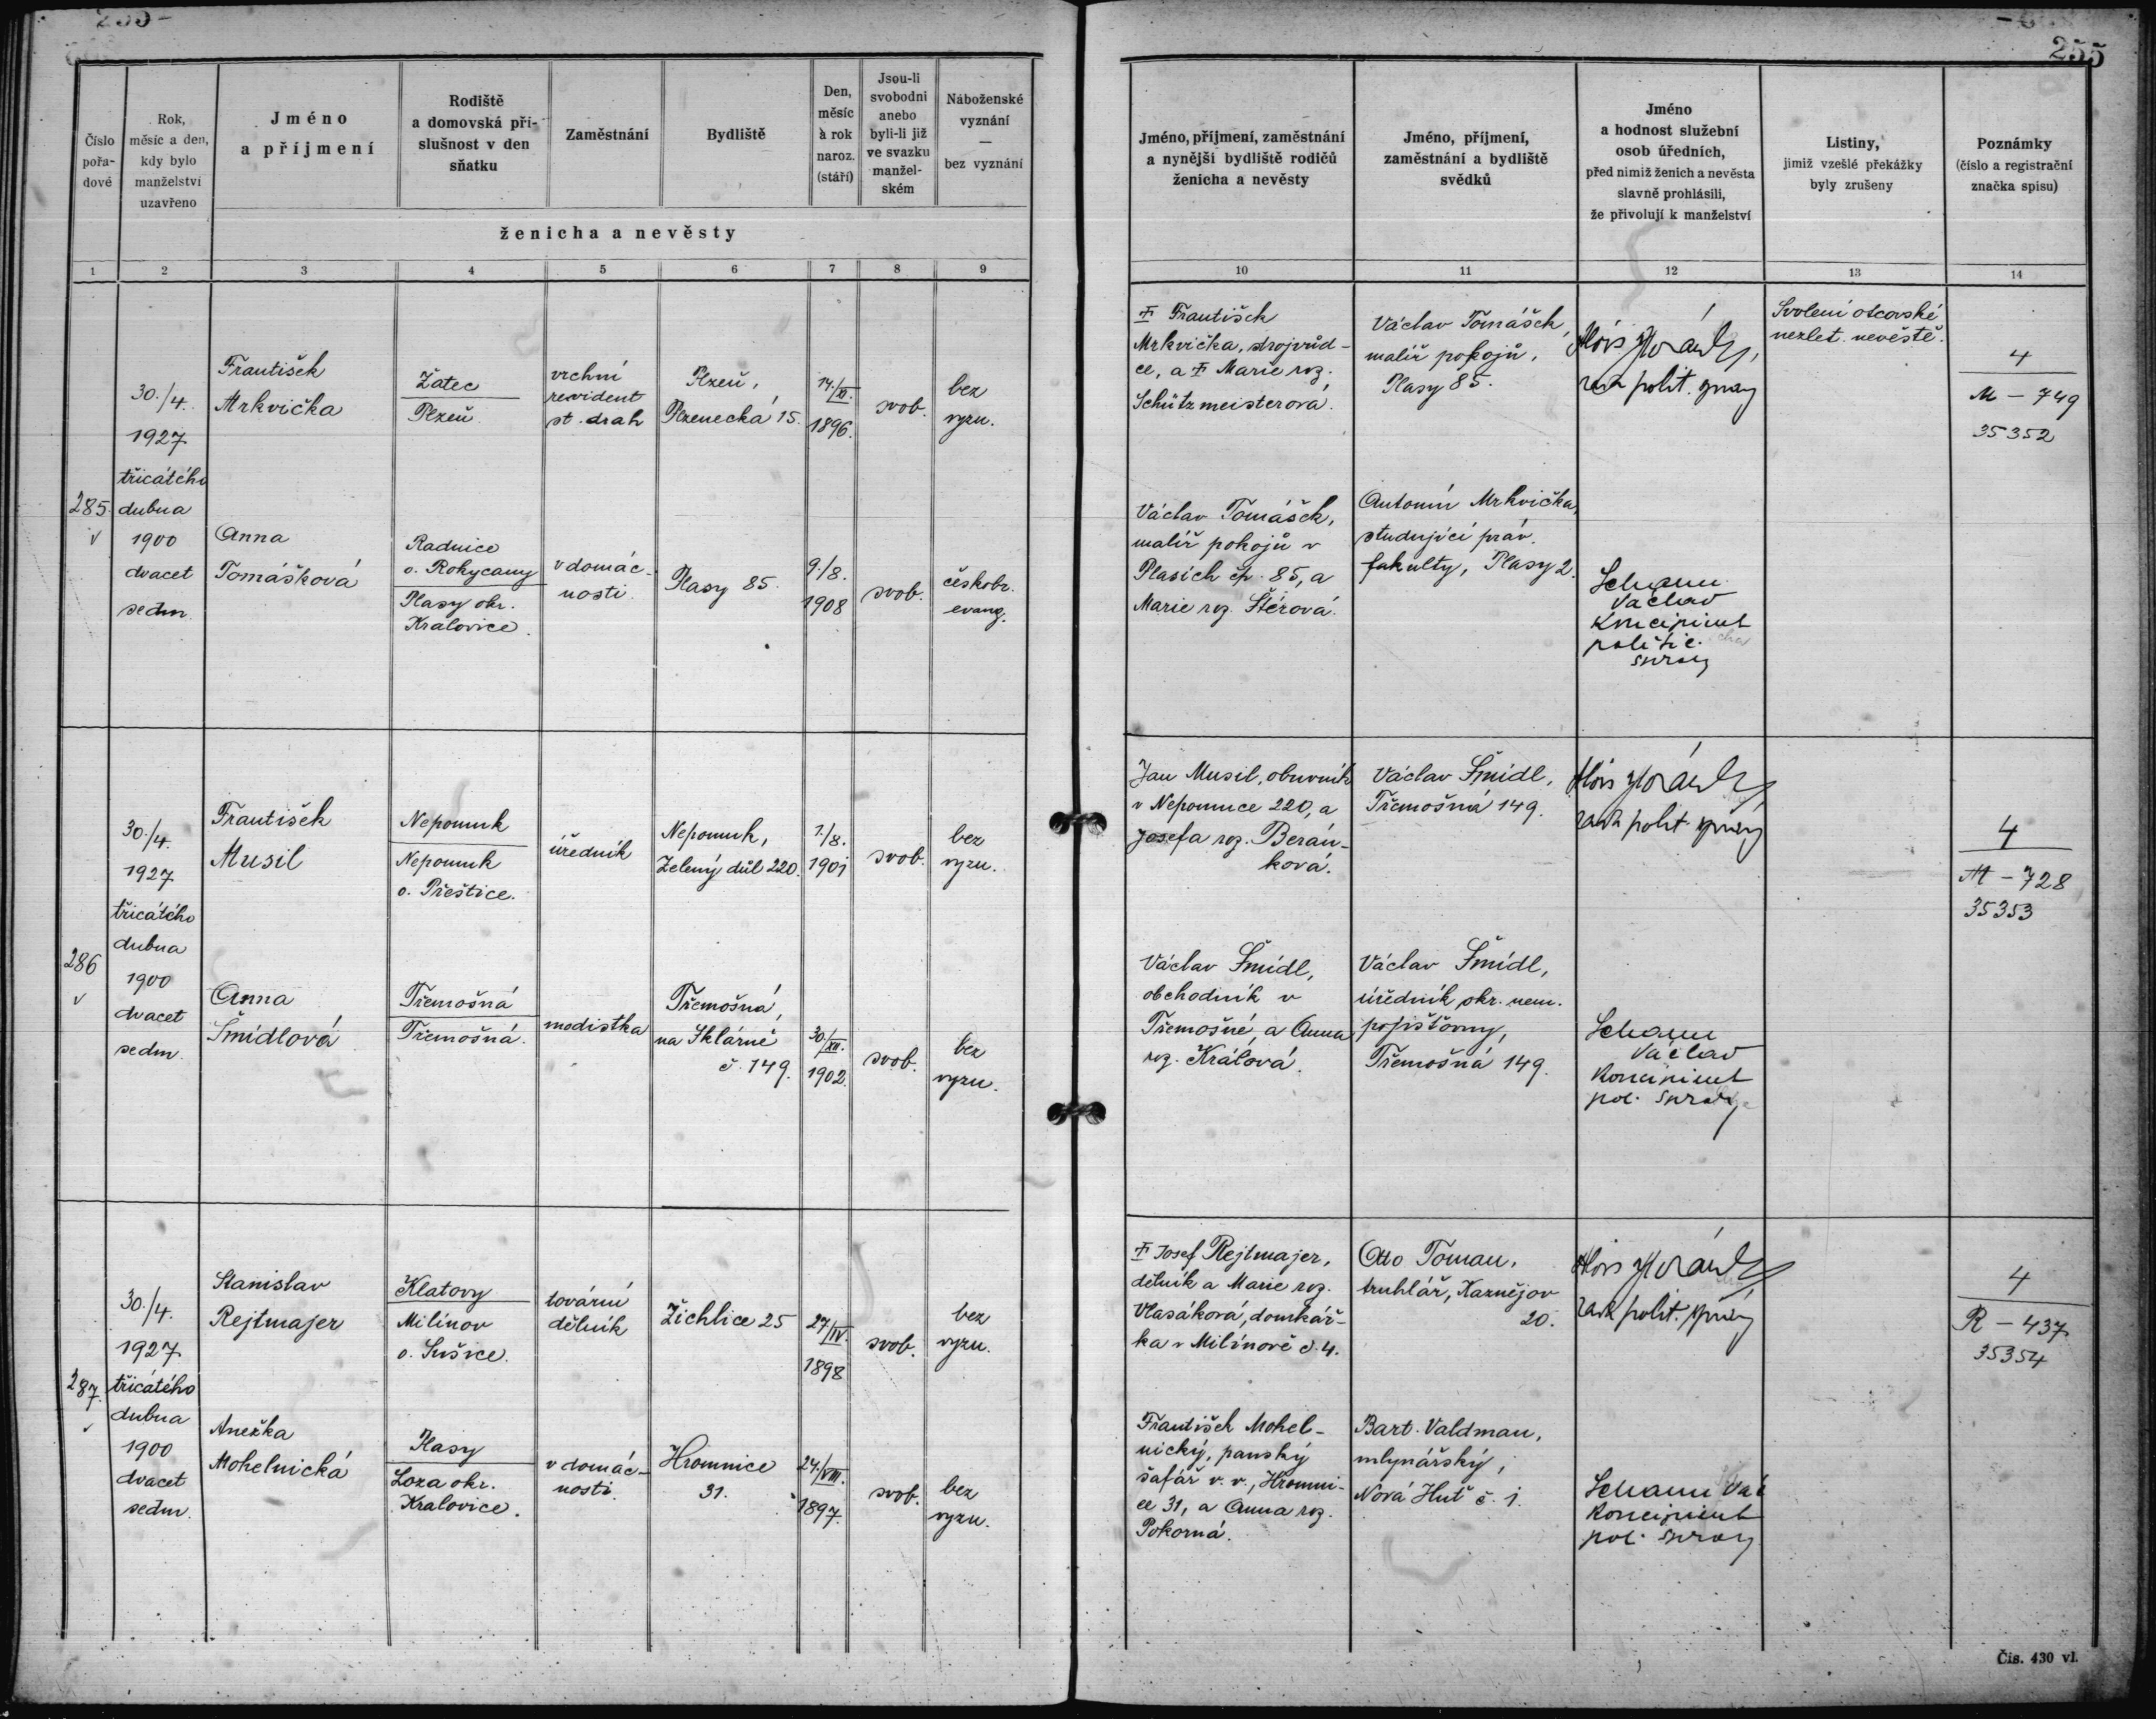 255
Číslo pořa-dové
Rok, měsíc a den, kdy bylo manželství uzavřeno
Jméno a příjmení
Rodiště a domovská pří-slušnost v den sňatku
Zaměstnání
Bydliště
Den, měsíc a rok naroz. (stáří)
Jsou-li svobodni anebo byli-li již ve svazku manžel-ském
Náboženské vyznání — bez vyznání
ženicha a nevěsty
Jméno, příjmení, zaměstnání a nynější bydliště rodičů ženicha a nevěsty
Jméno, příjmení, zaměstnání a bydliště svědků
Jméno a hodnost služební osob úředních, před nimiž ženich a nevěsta slavně prohlásili, že přivolují k manželství
Listiny, jimiž vzešlé překážky byly zrušeny
Poznámky (číslo a registrační značka spisu)
1 2 3 4 5 6 7 8 9 10 11 12 13 14
285
30./4.
1927
třicátého
dubna
1900
dvacet
sedm.
František
Mrkvička
Žatec
Plzeň
vrchní
revident
st. drah
Plzeň,
Plzenecká 15.
14./XI.
1896.
svob.
bez
vyzn.
Anna
Tomášková
Radnice
o. Rokycany
Plasy okr.
Kralovice.
v domác-
nosti.
Plasy 85.
9./8.
1908
svob.
českobr.
evang.
František
Mrkvička, strojvůd-
ce, a Marie roz.
Schützmeisterová.
Václav Tomášek,
malíř pokojů v
Plasích čp. 85, a
Marie roz. Štěrová.
Václav Tomášek,
malíř pokojů,
Plasy 85.
Antonín Mrkvička,
studující práv.
fakulty, Plasy 2.
Alois
rada polit. správy
Schann
Václav
Koncipient
politic.
správy
Svolení otcovské
nezlet. nevěstě.
4
M - 749
35352
286
30./4.
1927
třicátého
dubna
1900
dvacet
sedm.
František
Musil
Nepomuk
Nepomuk
o. Přeštice.
úředník
Nepomuk,
Zelený důl 220.
1./8.
1901
svob.
bez
vyzn.
Anna
Šmídlová
Třemošná
Třemošná.
modistka
Třemošná,
na Sklárně
č. 149.
30./XII.
1902.
svob.
bez
vyzn.
Jan Musil, obuvník
v Nepomuce 220, a
Josefa roz. Berán-
ková.
Václav Šmídl,
obchodník v
Třemošné, a Anna
roz. Králová.
Václav Šmídl,
Třemošná 149.
Václav Šmídl,
úředník okr. nem.
pojišťovny,
Třemošná 149.
Alois
rada polit. správy
Schann
Václav
Koncipient
pol. správy
4
M - 728
35353
287.
30./4.
1927
třicátého
dubna
1900
dvacet
sedm.
Stanislav
Rejtmajer
Klatovy
Milínov
o. Sušice.
tovární
dělník
Žichlice 25
27./IV.
1898
svob.
bez
vyzn.
Anežka
Mohelnická
Plasy
Loza okr.
Kralovice.
v domác-
nosti.
Hromnice
31.
24./VIII.
1897.
svob.
bez
vyzn.
Josef Rejtmajer,
dělník a Marie roz.
Vlasáková, domkář-
ka v Milínově č. 4.
František Mohel-
nický, panský
šafář v. v., Hromni-
ce 31, a Anna roz.
Pokorná.
Otto Toman,
truhlář, Kaznějov
20.
Bart. Valdman,
mlynářský,
Nová Huť č. 1.
Alois
rada polit. správy
Schann Vác
Koncipient
pol. správy
4
R - 437
35354
Čís. 430 vl.